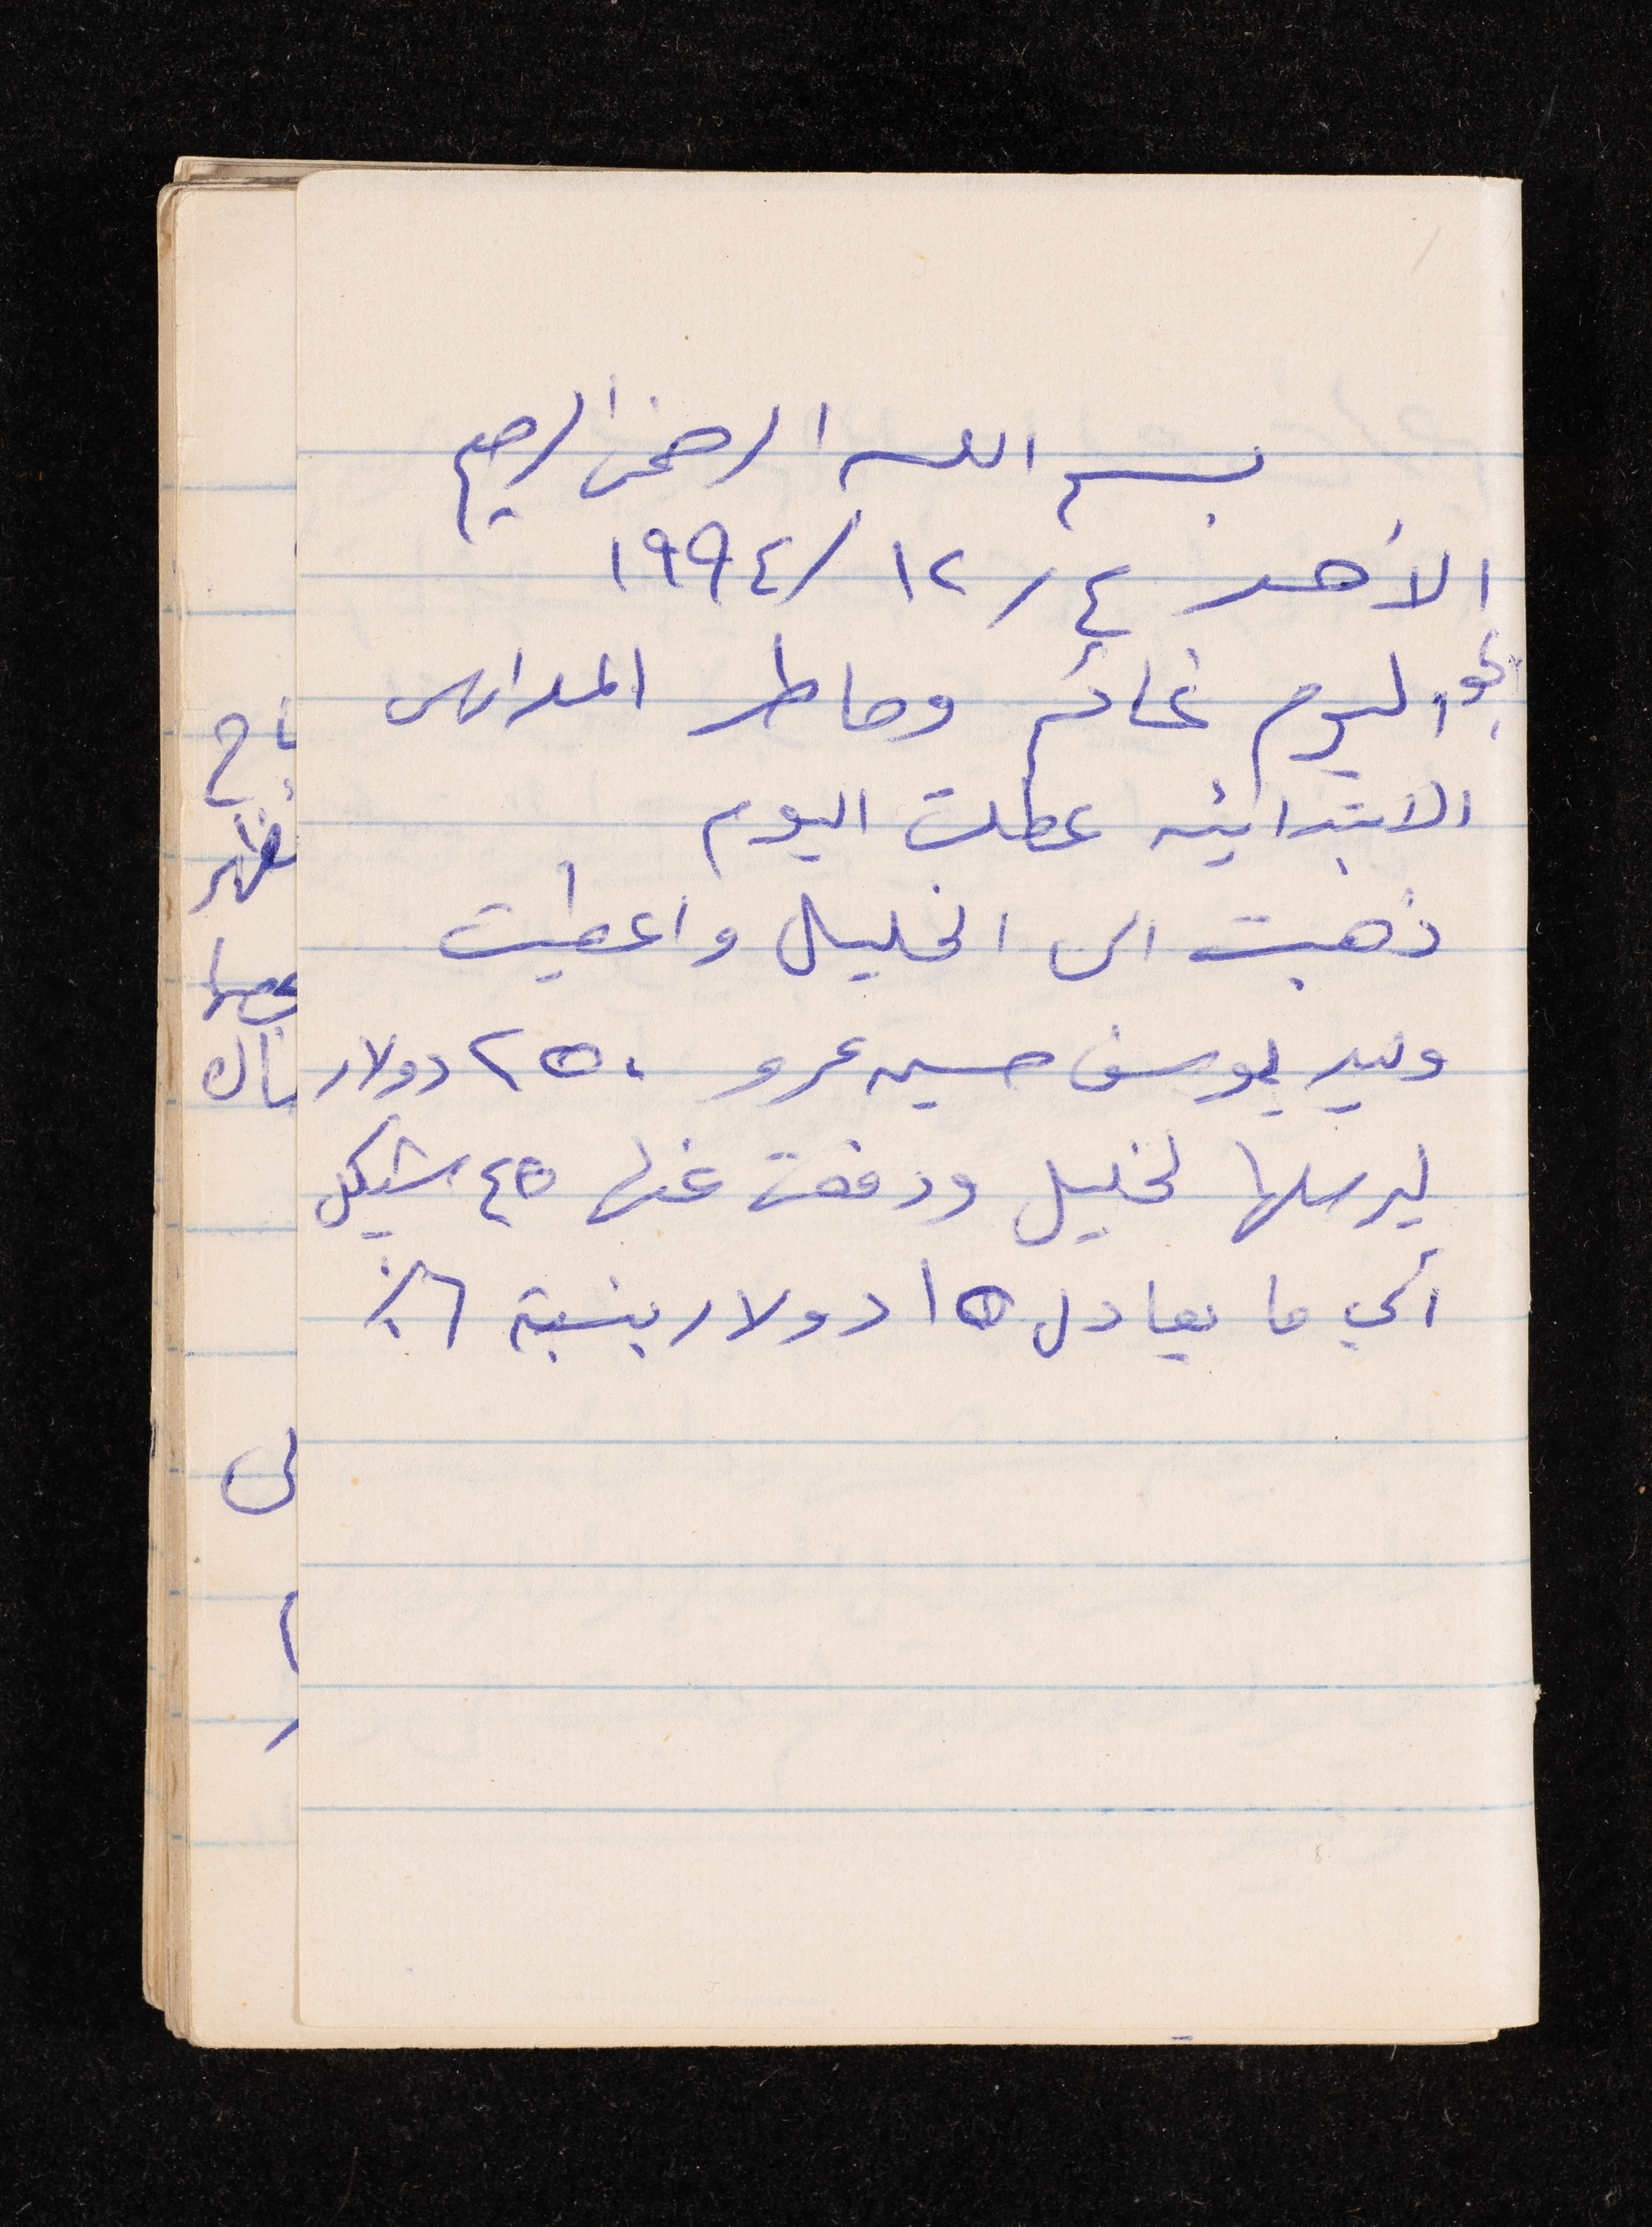 بسم الله الرحمن الرحيم
الأحد ٤/١٢/١٩٩٤
الجو اليوم غائم وماطر المدارس
الابتدائيه عطلت اليوم
ذهبت الى الخليل واعطيت
وليد يوسف حسين عمرو ٢٥٠ دولار
ليرسلها لخليل ودفعت عنها ٤٥ شيكل
أي ما يعادل ١٥ دولار بنسبة ٦٪